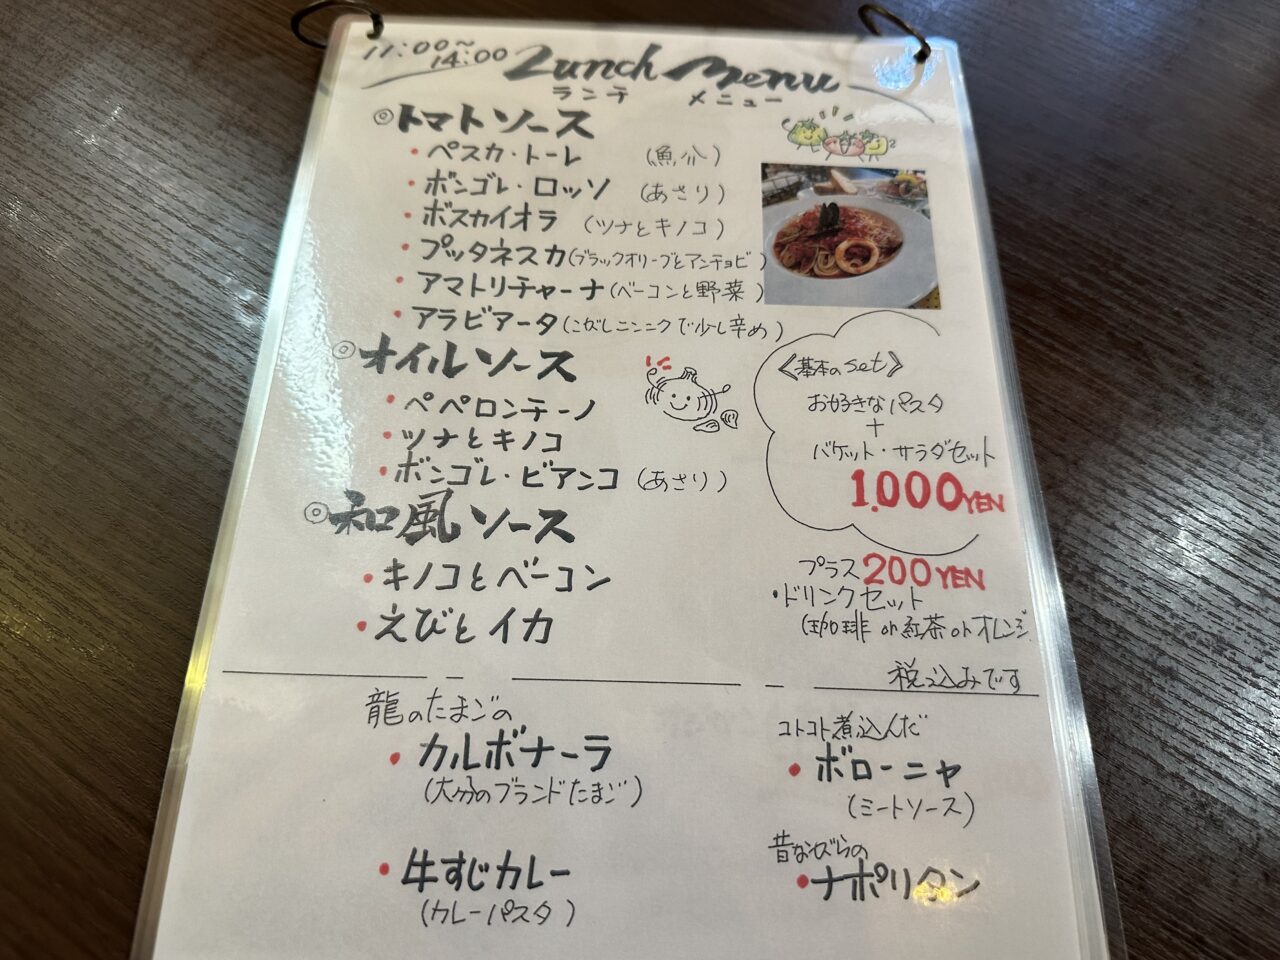 11:00~14:00 Lunch Menu
ランチ メニュー
◎トマトソース
・ペスカ・トーレ (魚介)
・ボンゴレ・ロッソ (あさり)
・ボスカイオラ (ツナとキノコ)
・プッタネスカ(ブラックオリーブとアンチョビ)
・アマトリチャーナ(ベーコンと野菜)
・アラビアータ(こがしニンニクで少し辛め)
◎オイルソース
・ペペロンチーノ
・ツナとキノコ
・ボンゴレ・ビアンコ (あさり)
◎和風ソース
・キノコとベーコン
・えびとイカ
《基本のset》
お好きなパスタ
+
バケット・サラダセット
1,000YEN
プラス200YEN
・ドリンクセット
(珈琲or紅茶orオレンジ
税込みです
龍のたまごの
・カルボナーラ
(大分のブランドたまご)
・牛すじカレー
(カレーパスタ)
コトコト煮込んだ
・ボローニャ
(ミートソース)
昔ながらの
・ナポリタン